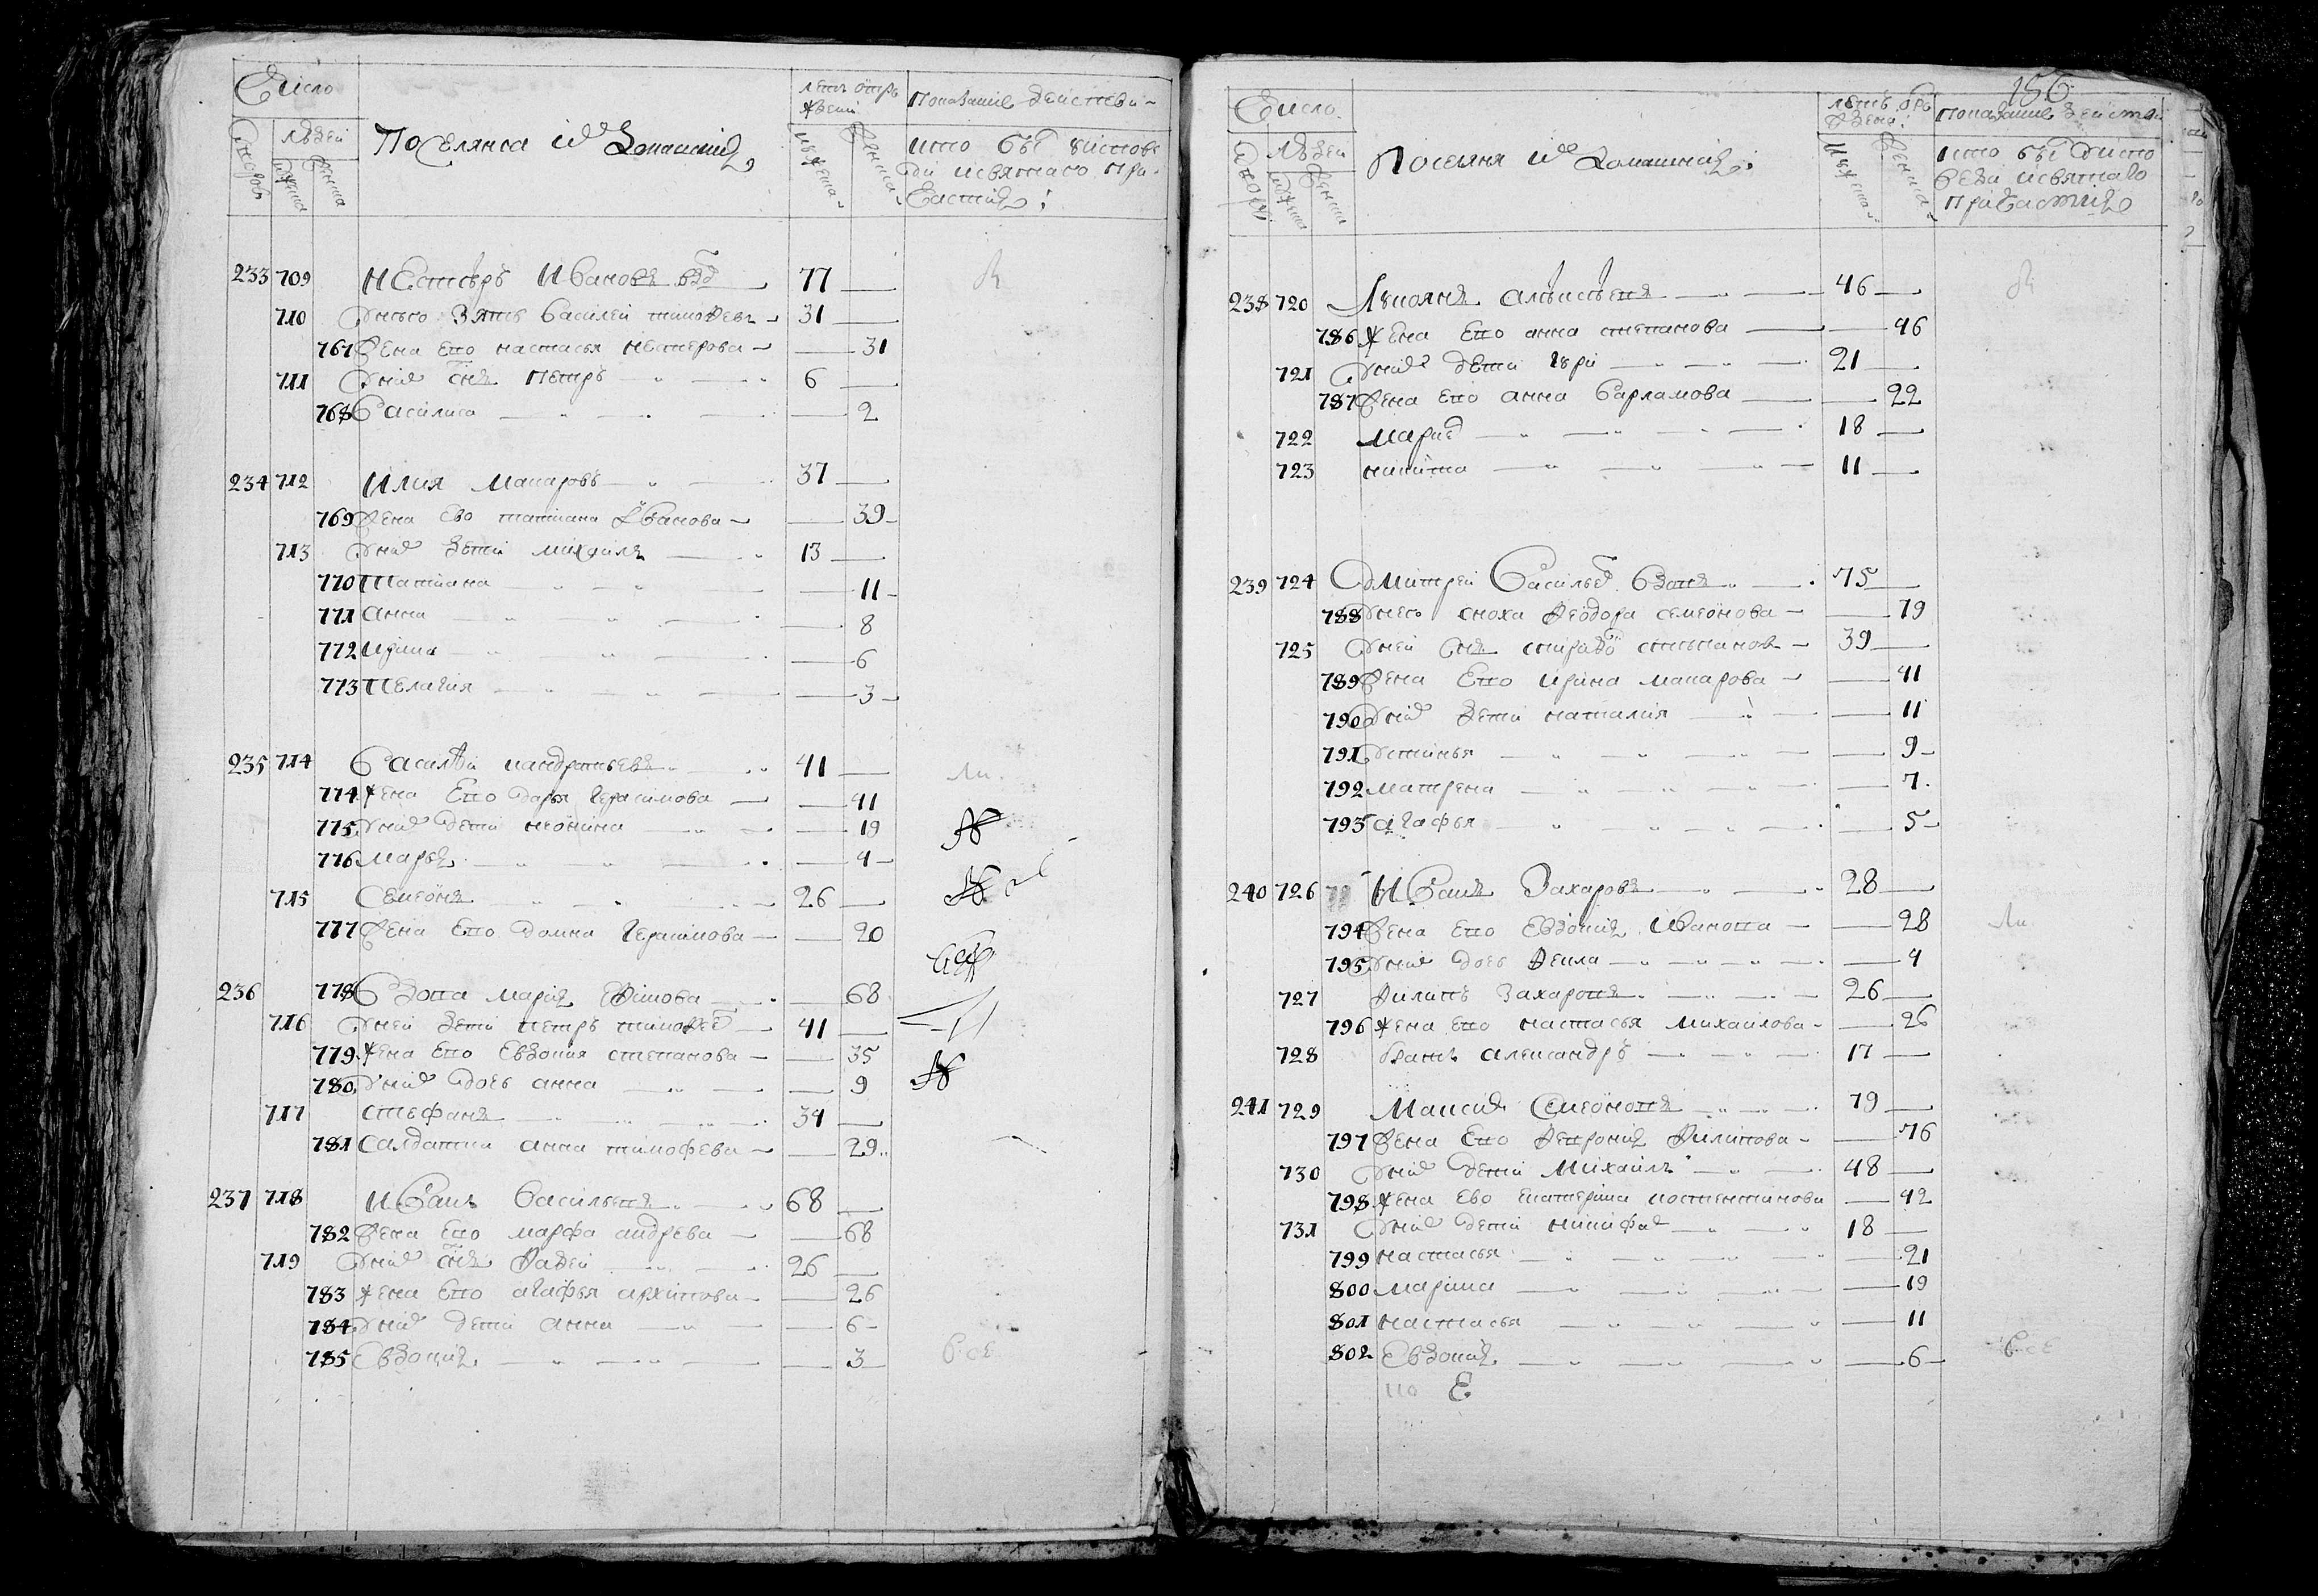 Число
людей
Поселяня и домашния
лѣтъ отрождения
Показание действи
хто был уисповеди исвятаго причастия
233 709 Нестеръ Ивановъ вдв 77
710 Унево зять Василей тимофеев 31
767 Жена ево настасья нестерова 31
711 Уних снъ Петръ 6
768 Василиса 2
234 712 Илия Макаровъ 37
769 Жена ево татиана Иванова 39
713 Уних дети михаилъ 13
770 Татиана 11
771 Анна 8
772 Ирина 6
773 Пелагия 3
235 714 Василей кандратьевъ 41
774 Жена ево дарья Герасимова 41
775 Уних дети неонила 19
776 Марья 4
715 Семеонъ 26
777 Жена ево домна Герасимова 20
236 778 Вдова мария 68
716 Уней дети петръ тимофеев 41
779 Жена ево Евдокия степанова 35
780 Уних дочь анна 9
717 стефанъ 34
781 Салдатка анна тимофева 29
237 718 Иванъ Васильевъ 68
782 Жена ево марфа андрева 68
719 Уних снъ Фадей 26
783 Жена ево агафья архипова 26
784 Уних дети анна 6
785 Евдокия 3
156
Число
людей
Поселяня и домашния
лѣтъ отрождения
Показание действи
хто был уисповеди исвятаго причастия
238 720 Лукоянъ алексѣевъ 46
786 Жена ево анна степанова 46
721 Уних дети Гури 21
787 Жена ево анна Варламова 22
722 марке 18
723 никита 11
239 724 Дмитрей Васильев Вдовъ 75
788 Унево сноха Феодора семеонова 79
725 Уней снъ спиридо степанов 39
789 Жена ево ирина макарова 41
790 Уних дети наталия 11
791 Устинья 9
792 матрена 7
793 агафья 5
240 726 Иванъ Захаровъ 28
794 Жена ево Евдокия Иванова 28
795 Уних дочь Фекла 4
727 Филипъ Захаровъ 26
796 Жена ево настасья михайлова 26
728 братъ александръ 17
241 729 Максимъ Семеоновъ 79
797 Жена ево Феврония Филипова 76
730 Уних дети Михаилъ 48
798 Жена ево екатерина костентинова 42
731 Уних дети никифор 18
799 настасья 21
800 марина 19
801 настасья 11
802 Евдокия 6